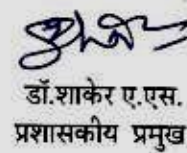 डॉ.शाकेर ए.एस.
प्रशासकीय प्रमुख